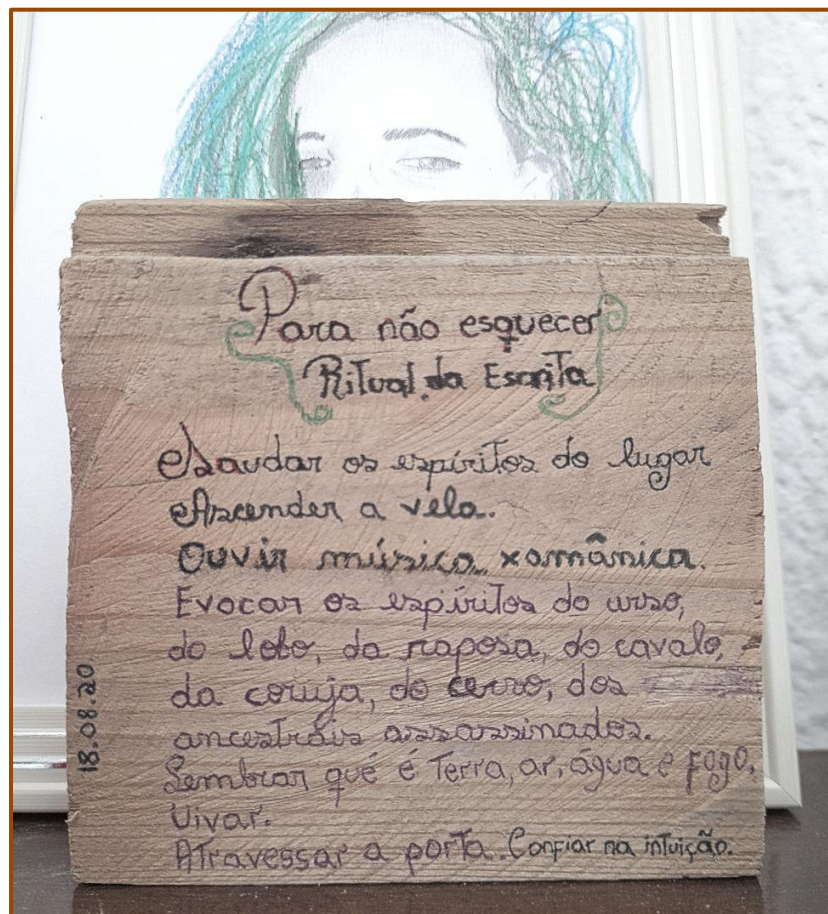 Para não esquecer
Ritual da Escrita
Saudar os espíritos do lugar
Ascender a vela.
Ouvir música xamânica.
Evocar os espíritos do urso,
do lobo, da raposa, do cavalo,
da coruja, do cervo, dos
ancestrais assassinados.
Lembrar que é Terra, ar, água e fogo.
Uivar.
Atravessar a porta. Confiar na intuição.
18.08.20